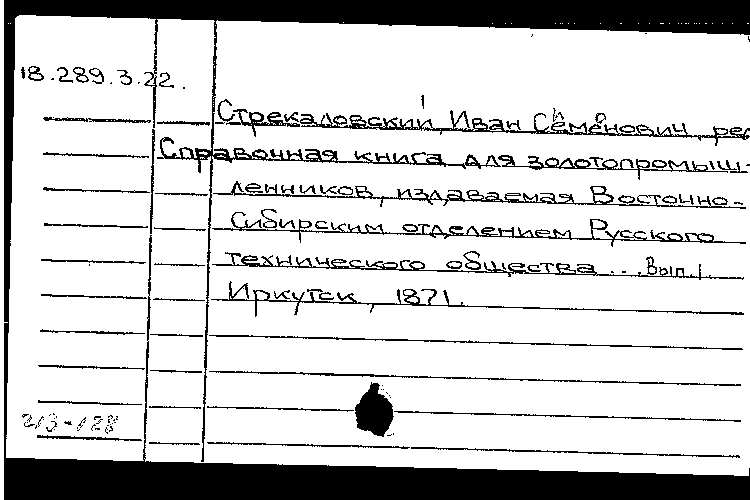 18.289.3.22.
Стрекаловский, Иван Семенович, ред
Справочная книга для золотопромыш-
ленников, издаваемая Восточно-
Сибирским отделением Русского
технического общества ... Вып.1.
Иркутск, 1871.
213-128